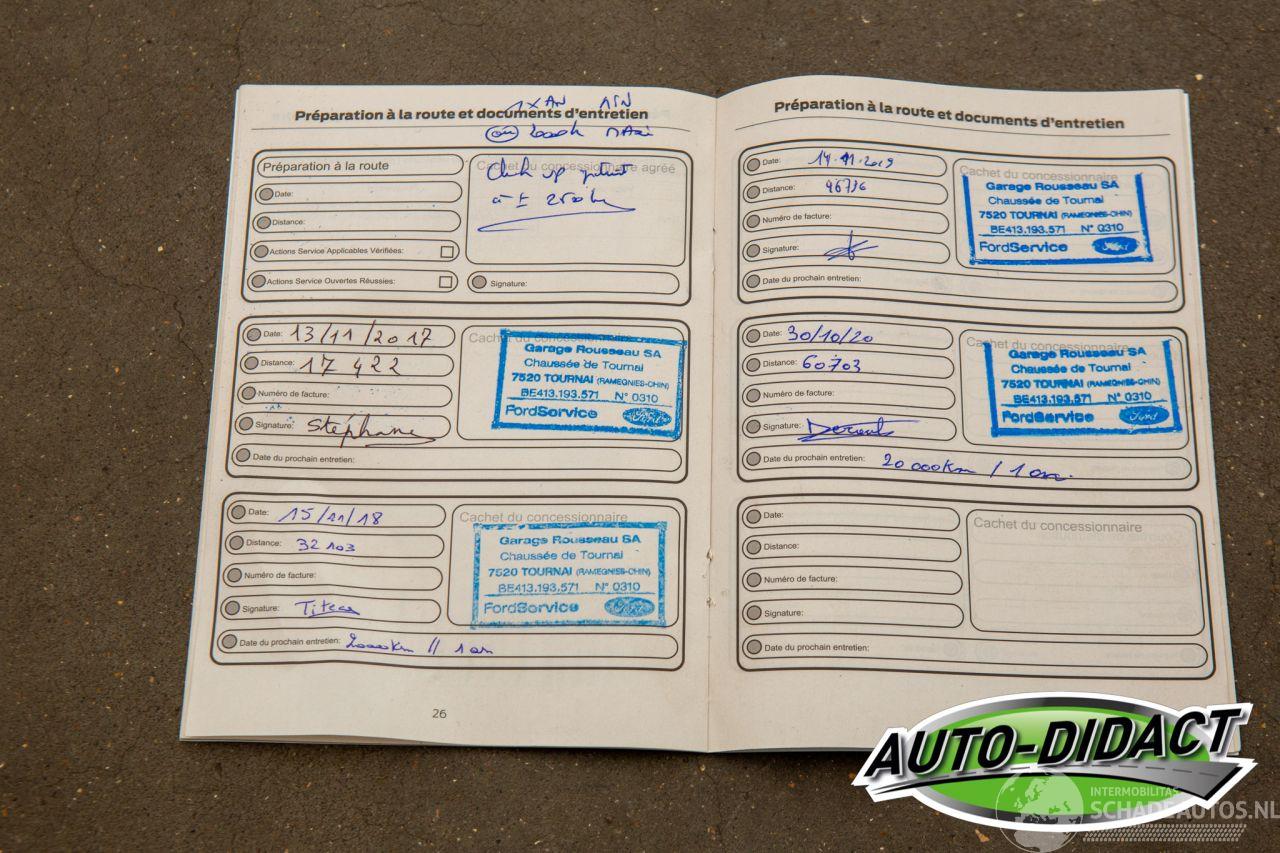 Préparation à la route et documents d'entretien
1 X AN
Préparation à la route
Cachet du concessionnaire agréé
Check up gratuit
à ± 2500 km
Date:
Distance:
Actions Service Applicables Vérifiées:
Actions Service Ouvertes Réussies:
Signature:
Date: 13/11/2017
Distance: 17 422
Numéro de facture:
Signature: Stephane
Date du prochain entretien:
Cachet du concessionnaire
Garage Rousseau SA
Chaussée de Tournai
7520 TOURNAI (RAMEGNIES-CHIN)
BE413.193.571 N° 0310
FordService Ford
Date: 15/11/18
Distance: 32 103
Numéro de facture:
Signature: Titeca
Date du prochain entretien: 20000km // 1 an
Cachet du concessionnaire
Garage Rousseau SA
Chaussée de Tournai
7520 TOURNAI (RAMEGNIES-CHIN)
BE413.193.571 N° 0310
FordService Ford
26
Préparation à la route et documents d'entretien
Date: 14.11.2019
Distance: 46736
Numéro de facture:
Signature:
Date du prochain entretien:
Cachet du concessionnaire
Garage Rousseau SA
Chaussée de Tournai
7520 TOURNAI (RAMEGNIES-CHIN)
BE413.193.571 N° 0310
FordService Ford
Date: 30/10/20
Distance: 60703
Numéro de facture:
Signature:
Date du prochain entretien: 20 000km / 1 an.
Cachet du concessionnaire
Garage Rousseau SA
Chaussée de Tournai
7520 TOURNAI (RAMEGNIES-CHIN)
BE413.193.571 N° 0310
FordService Ford
Date:
Distance:
Numéro de facture:
Signature:
Date du prochain entretien:
Cachet du concessionnaire
AUTO-DIDACT
INTERMOBILITAS
SCHADEAUTOS.NL